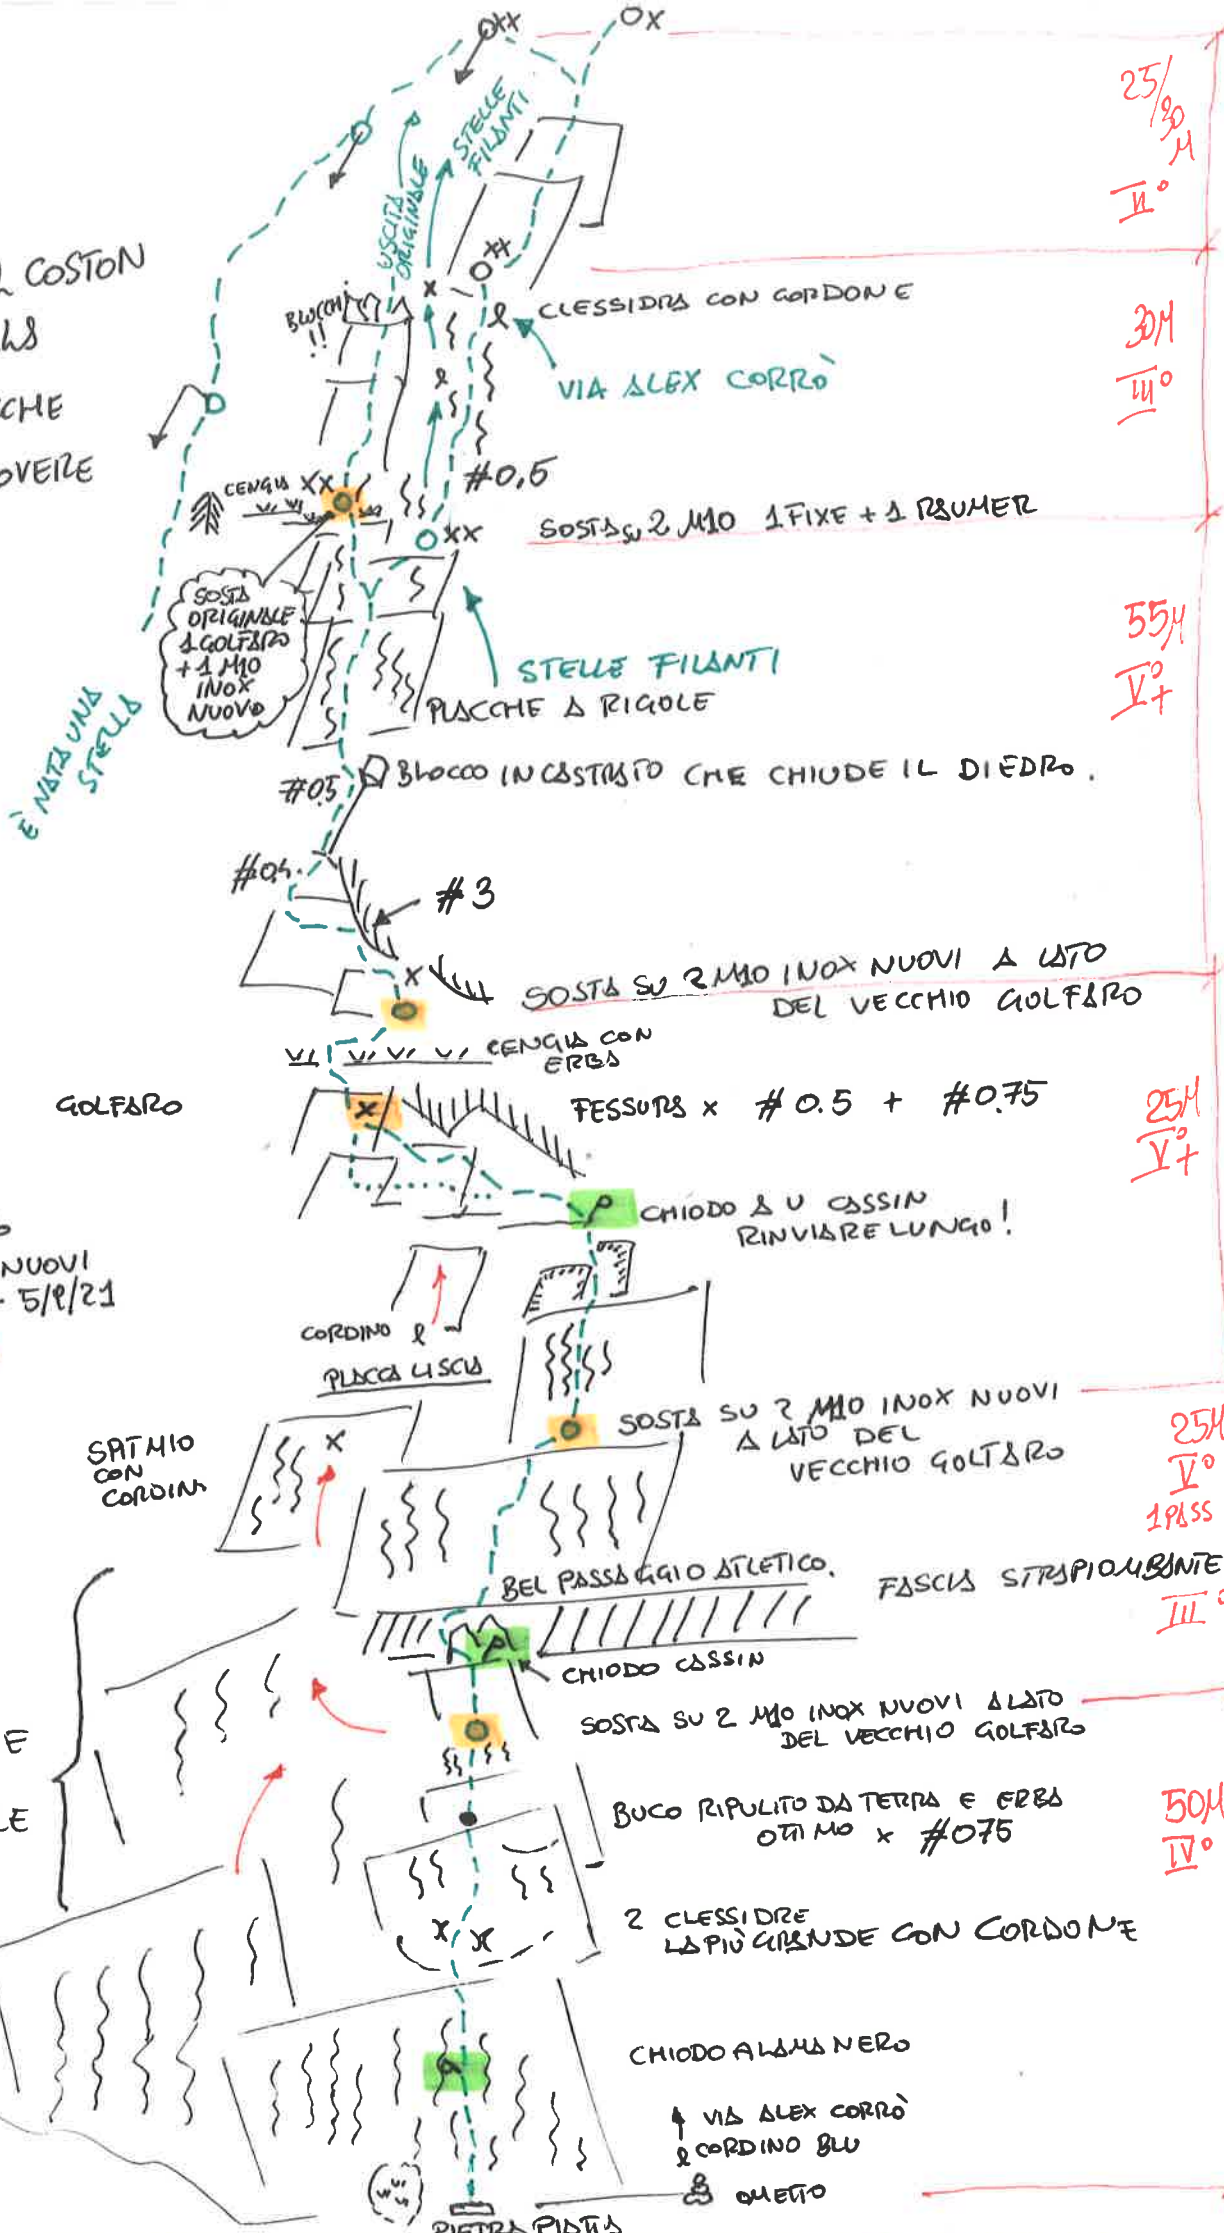 25/30 M
II°
STELLE
FILANTI
USCITA
ORIGINALE
COSTON
BLOCCHI
!!
CLESSIDRA CON CORDONE
30M
III°
VIA ALEX CORRÒ
#0,5
CENGIA XX
XX
SOSTA SU 2 M10 1 FIXE + 1 RAUMER
SOSTA
ORIGINALE
1 GOLFARO
+ 1 M10
INOX
NUOVO
55M
V°+
STELLE FILANTI
PLACCHE A RIGOLE
È NATA UNA
STELLA
#05
BLOCCO INCASTRATO CHE CHIUDE IL DIEDRO.
#04.
#3
SOSTA SU 2 M10 INOX NUOVI A LATO
DEL VECCHIO GOLFARO
CENGIA CON
ERBA
GOLFARO
FESSURA x #0.5 + #0.75
25M
V°+
CHIODO A U CASSIN
RINVIARE LUNGO!
NUOVI
5/9/21
CORDINO
PLACCA LISCIA
SOSTA SU 2 M10 INOX NUOVI
A LATO DEL
VECCHIO GOLFARO
25M
V°
1PASS
III°
SPIT M10
CON
CORDINO
BEL PASSAGGIO ATLETICO.
FASCIA STRAPIOMBANTE
CHIODO CASSIN
SOSTA SU 2 M10 INOX NUOVI A LATO
DEL VECCHIO GOLFARO
BUCO RIPULITO DA TERRA E ERBA
OTTIMO x #075
50M
IV°
2 CLESSIDRE
LA PIÙ GRANDE CON CORDONE
CHIODO A LAMA NERO
VIA ALEX CORRÒ
CORDINO BLU
OMETTO
PIETRA PIATTA